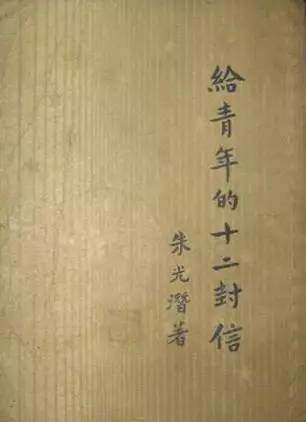 給青年的十二封信
朱光潛著